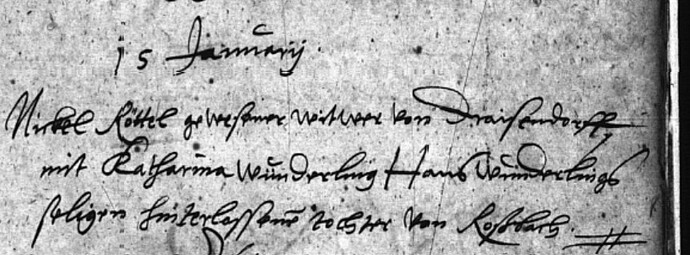 15 Januarij
Nickel Röttel gewesener witwer von Draisendorff,
mit Katharina Wunderling Hans Wunderlings
seligen hinterlassene tochter von Roßbach.